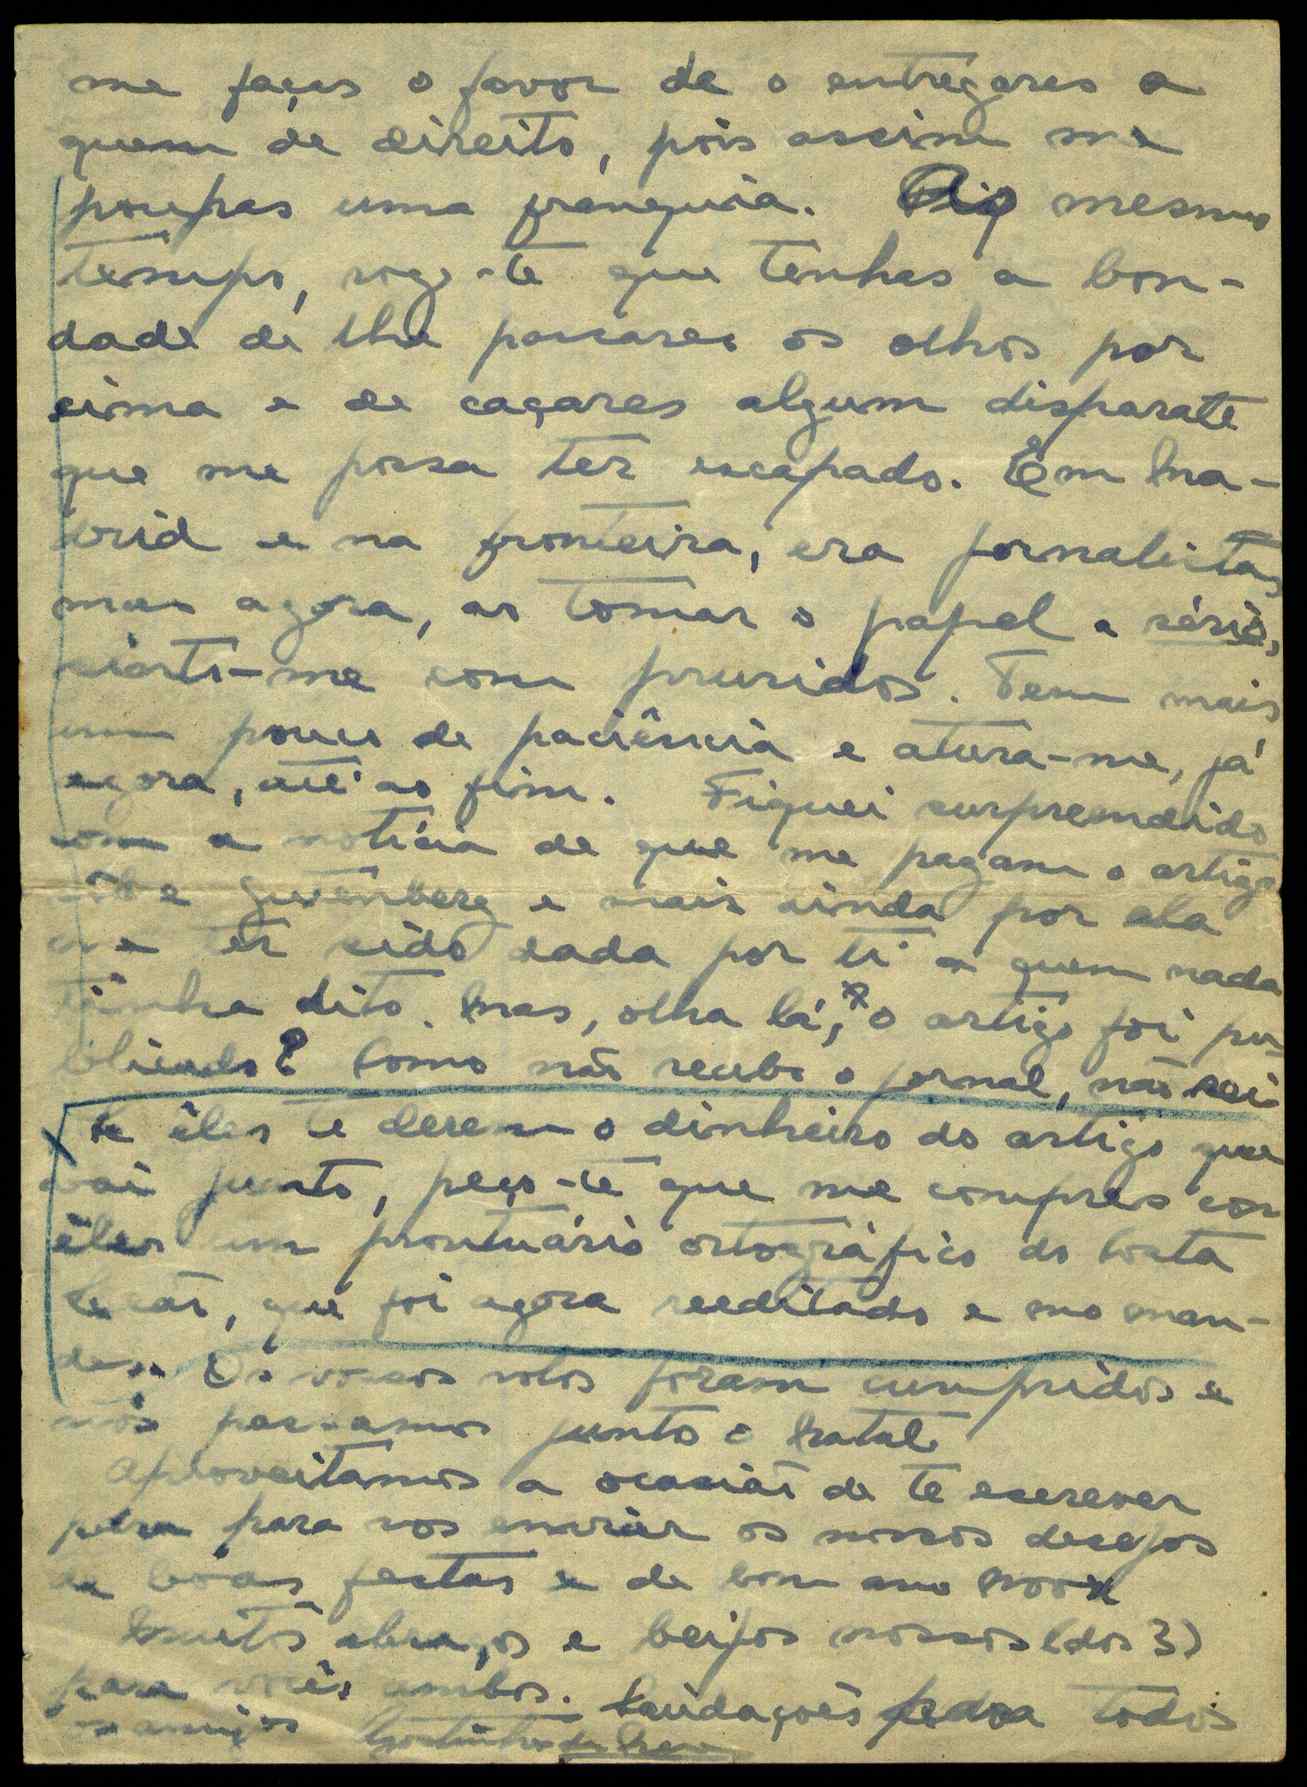 me faças o favor de o entregares a
quem de direito, pois assim me
poupas uma franquia. Ao mesmo
tempo, rogo-te que tenhas a bon-
dade de lhe passares os olhos por
cima e de caçares algum disparate
que me possa ter escapado. Em Ma-
drid e na fronteira, era jornalista,
mas agora, ao tomar o papel a sério,
sinto-me com pruridos. Tem mais
um pouco de paciência e atura-me, já
agora, até ao fim. Fiquei surpreendido
com a notícia de que me pagam o artigo
sôbre Gutenberg e mais ainda por ela
me ter sido dada por ti a quem nada
tinha dito. Mas, olha lá, o artigo foi pu-
blicado? Como não recebo o jornal, não sei
Se êles te derem o dinheiro do artigo que
vai junto, peço-te que me compres com
êles um prontuário ortográfico do Costa
Leão, que foi agora reeditado e mo man-
des. Os vossos votos foram cumpridos e
nós passamos junto o Natal.
Aproveitamos a ocasião de te escrever
para vos enviar os nossos desejos
de bôas festas e de bom ano novo
Muitos abraços e beijos nossos (dos 3)
para vocês ambos. Saudações a todos
os amigos